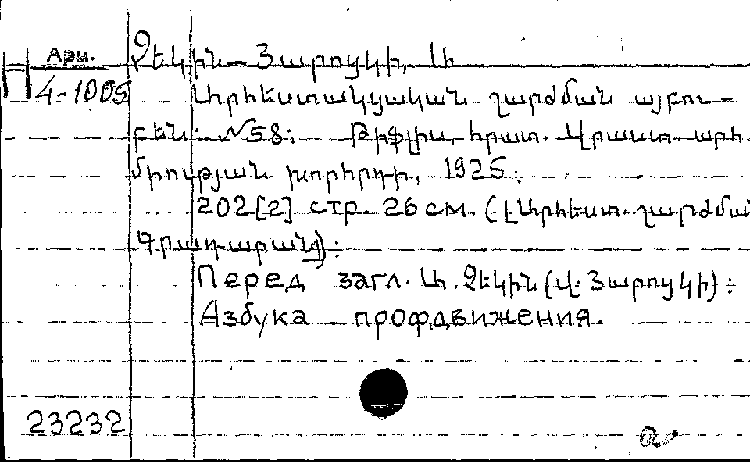 Арм. Չեկին-Յարոցկի, Ա.
П 4-1005 Արհեստակցական շարժման այբու-
բեն: №58: Թիֆլիս, հրատ. Վրաստ. արհ.
միության խորհրդի, 1925:
202[2] стр. 26 см. (Արհեստ. շարժման
Գրադարան):
Перед загл. Ա. Չեկին (Վ. Յարոցկի):
Азбука профдвижения.
23232